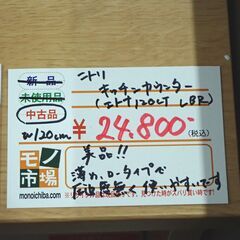 新品
未使用品
中古品
W120cm
ニトリ
キッチンカウンター
(エトナ120CT LBR)
¥24,800-(税込)
モノ市場
monoichiba.com
美品!!
薄め、ロータイプで
圧迫感無く使いやすいです